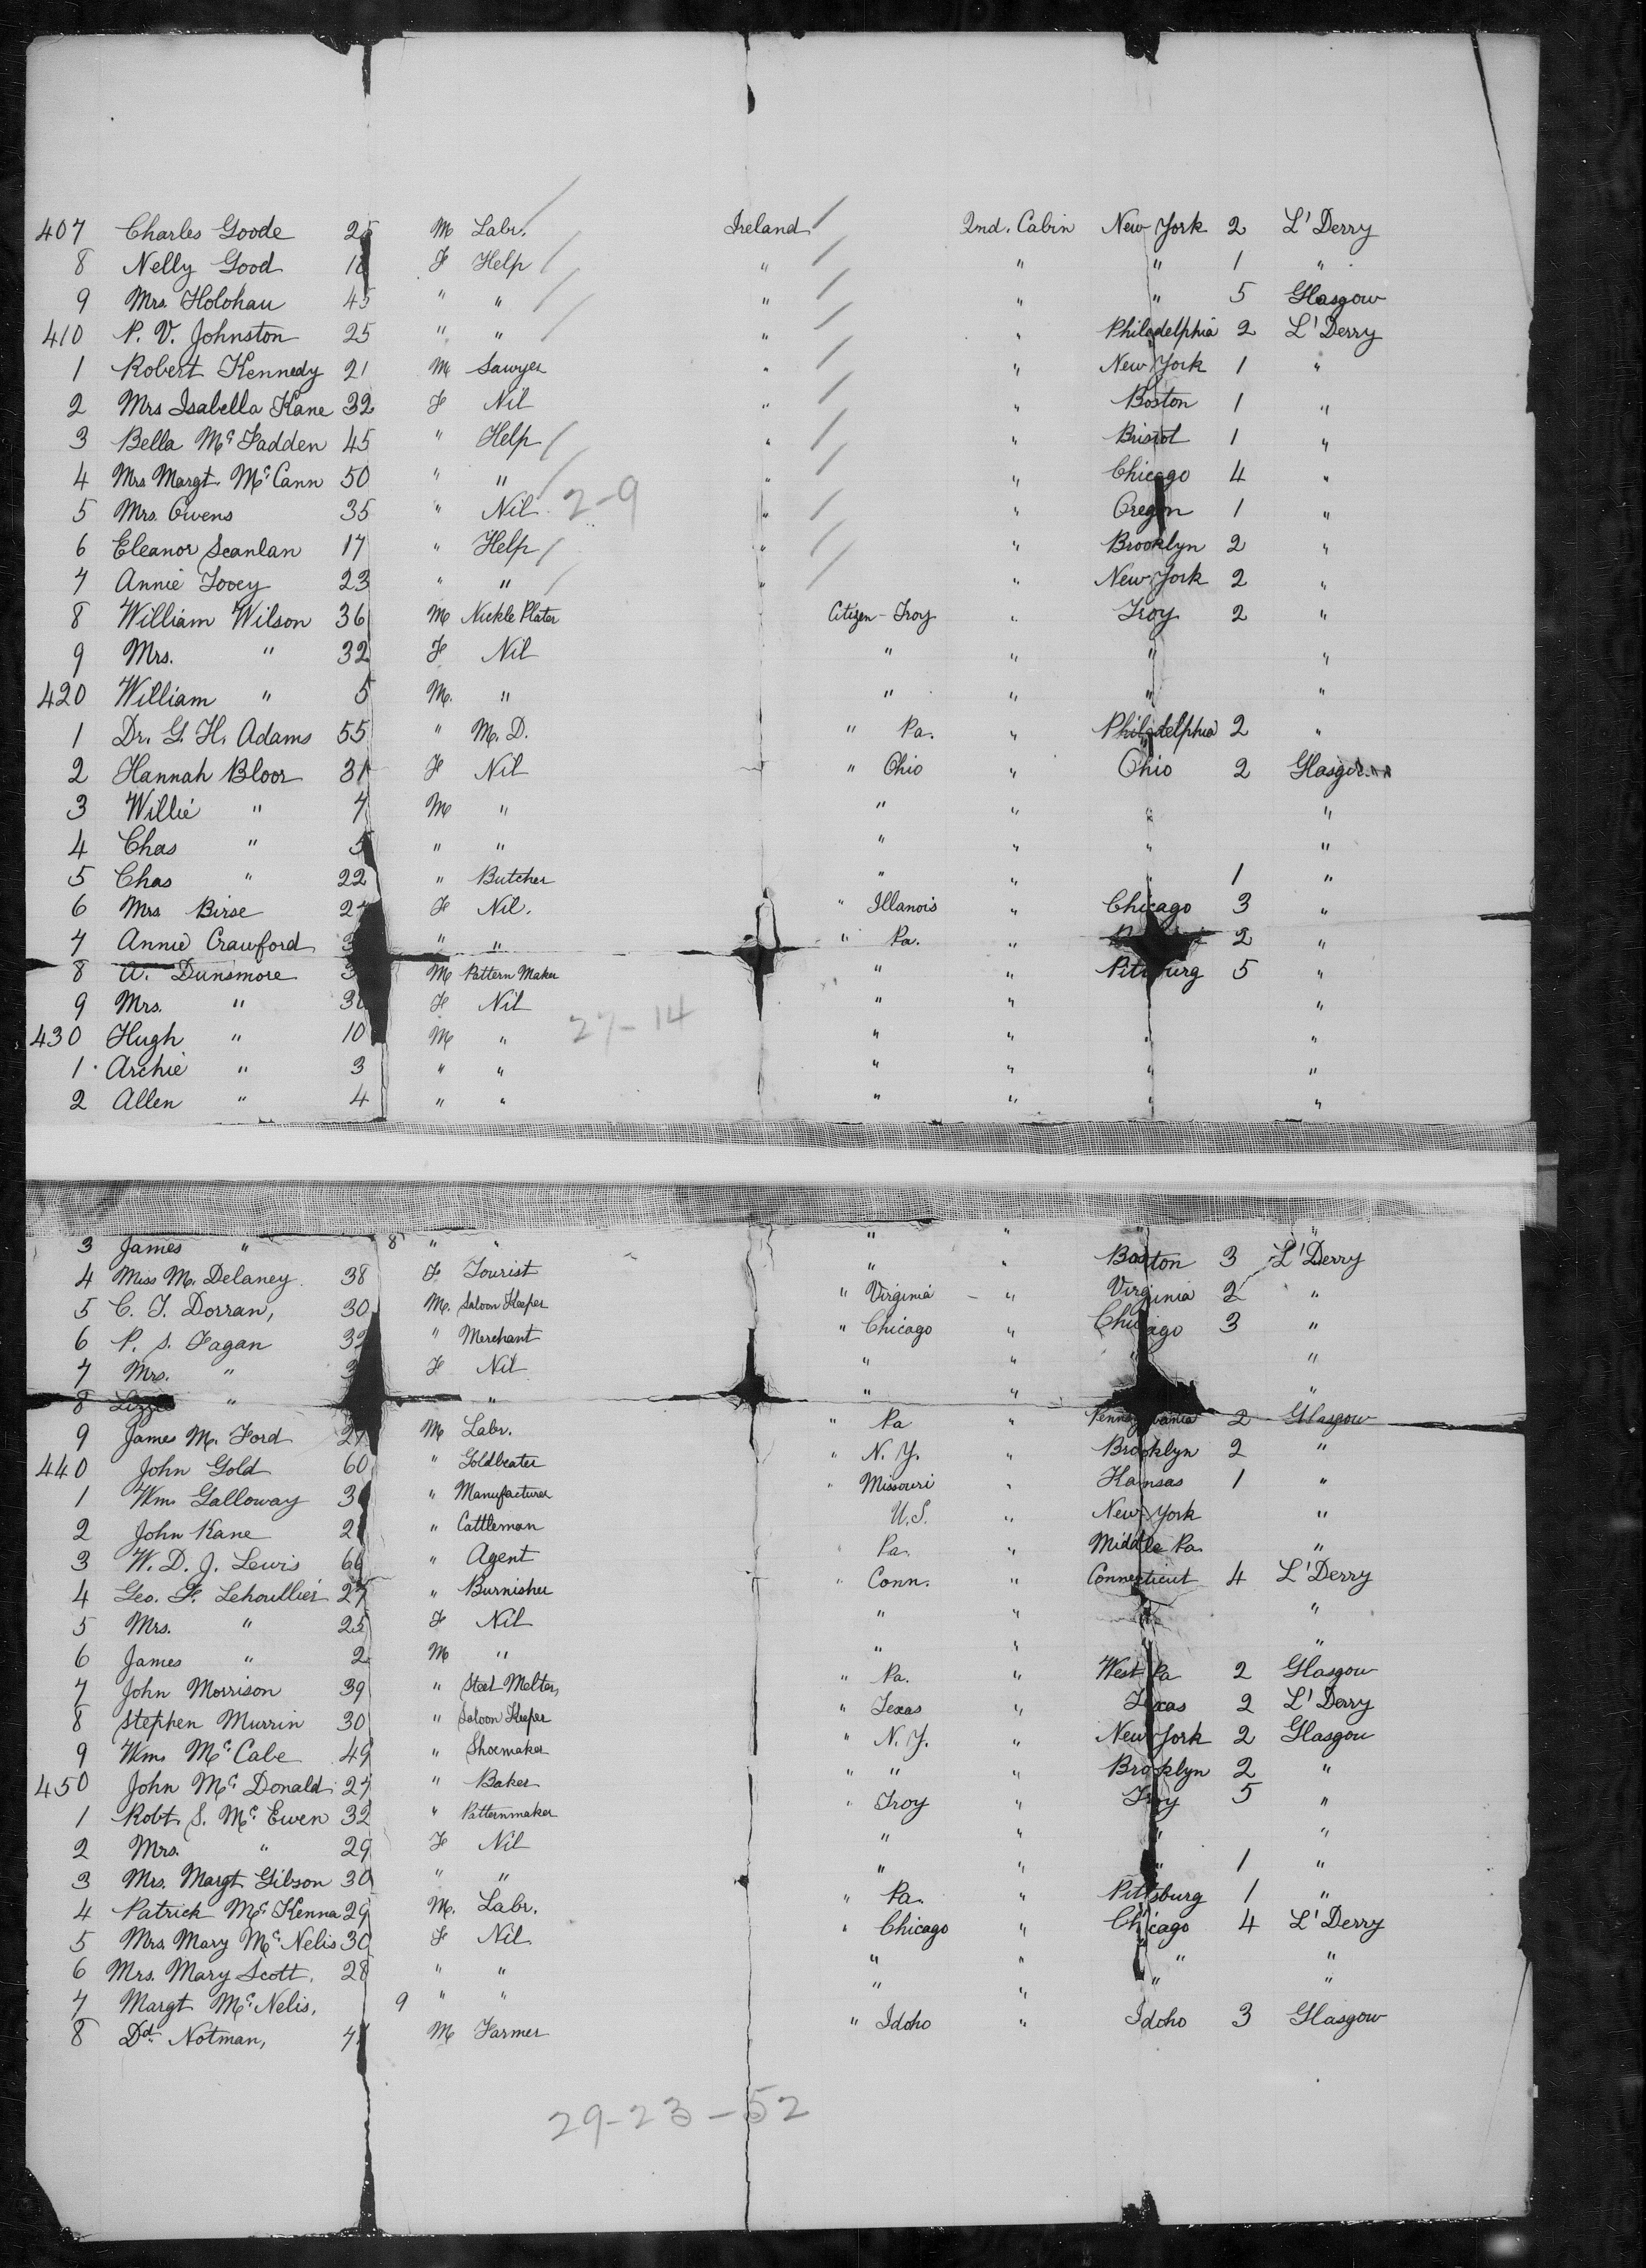 407 Charles Goode 25 M Labr. Ireland 2nd. Cabin New York 2 L'Derry
8 Nelly Good 18 F Help " " " 1 "
9 Mrs. Holohan 45 " " " " " 5 Glasgow
410 P. V. Johnston 25 " " " " Philadelphia 2 L'Derry
1 Robert Kennedy 21 M Sawyer " " New York 1 "
2 Mrs Isabella Kane 32 F Nil " " Boston 1 "
3 Bella McFadden 45 " Help " " Bristol 1 "
4 Mrs Margt. McCann 50 " " " " Chicago 4 "
5 Mrs. Owens 35 " Nil 2-9 " " Oregon 1 "
6 Eleanor Scanlan 17 " Help " " Brooklyn 2 "
7 Annie Tovey 23 " " " " New York 2 "
8 William Wilson 36 M Nickle Plater Citizen - Troy " Troy 2 "
9 Mrs. " 32 F Nil " " " "
420 William " 5 M. " " " " "
1 Dr. G. H. Adams 55 " M. D. " Pa. " Philadelphia 2 "
2 Hannah Bloor 31 F Nil " Ohio " Ohio 2 Glasgow
3 Willie " 7 M " " " " "
4 Chas " 5 " " " " " "
5 Chas " 22 " Butcher " " " 1 "
6 Mrs Birse 27 F Nil. " Illanois " Chicago 3 "
7 Annie Crawford " " " Pa. " 2 "
8 A. Dunsmore M Pattern Maker " " Pittsburg 5 "
9 Mrs. " F Nil " " "
430 Hugh " 10 M " 27-14 " " " "
1 Archie " 3 " " " " " "
2 Allen " 4 " " " " " "
3 James " 8 " " " " " "
4 Miss M. Delaney 38 F Tourist " " Boston 3 L'Derry
5 C. T. Dorran, 30 M. Saloon Keeper " Virginia " Virginia 2 "
6 P. S. Fagan 32 " Merchant " Chicago " Chicago 3 "
7 Mrs. " F Nil " " " "
8 Lizzie " " " " "
9 James M. Ford 27 M Labr. " Pa " Pennsylvania 2 Glasgow
440 John Gold 60 " Goldbeater " N. Y. " Brooklyn 2 "
1 Wm. Galloway " Manufacturer " Missouri " Kansas 1 "
2 John Kane " Cattleman U.S. " New York "
3 W. D. J. Lewis 66 " Agent Pa. " Middle Pa. "
4 Geo. F. Lehoullier 27 " Burnisher " Conn. " Connecticut 4 L'Derry
5 Mrs. " 25 F Nil " " " "
6 James " 2 M " " " "
7 John Morrison 39 " Steel Melter, " Pa. " West Pa 2 Glasgow
8 Stephen Murrin 30 " Saloon Keeper " Texas " Texas 2 L'Derry
9 Wm. McCabe 49 " Shoemaker " N. Y. " New York 2 Glasgow
450 John McDonald 27 " Baker " " " Brooklyn 2 "
1 Robt. S. McEwen 32 " Patternmaker " Troy " Troy 5 "
2 Mrs. " 29 F Nil " " " "
3 Mrs. Margt Gibson 30 " " " " " 1 "
4 Patrick McKenna 29 M. Labr. " Pa. " Pittsburg 1 "
5 Mrs. Mary McNelis 30 F Nil " Chicago " Chicago 4 L'Derry
6 Mrs. Mary Scott. 28 " " " " " "
7 Margt McNelis, 9 " " " " " "
8 Dd. Notman, M Farmer " Idoho " Idoho 3 Glasgow
29-23-52